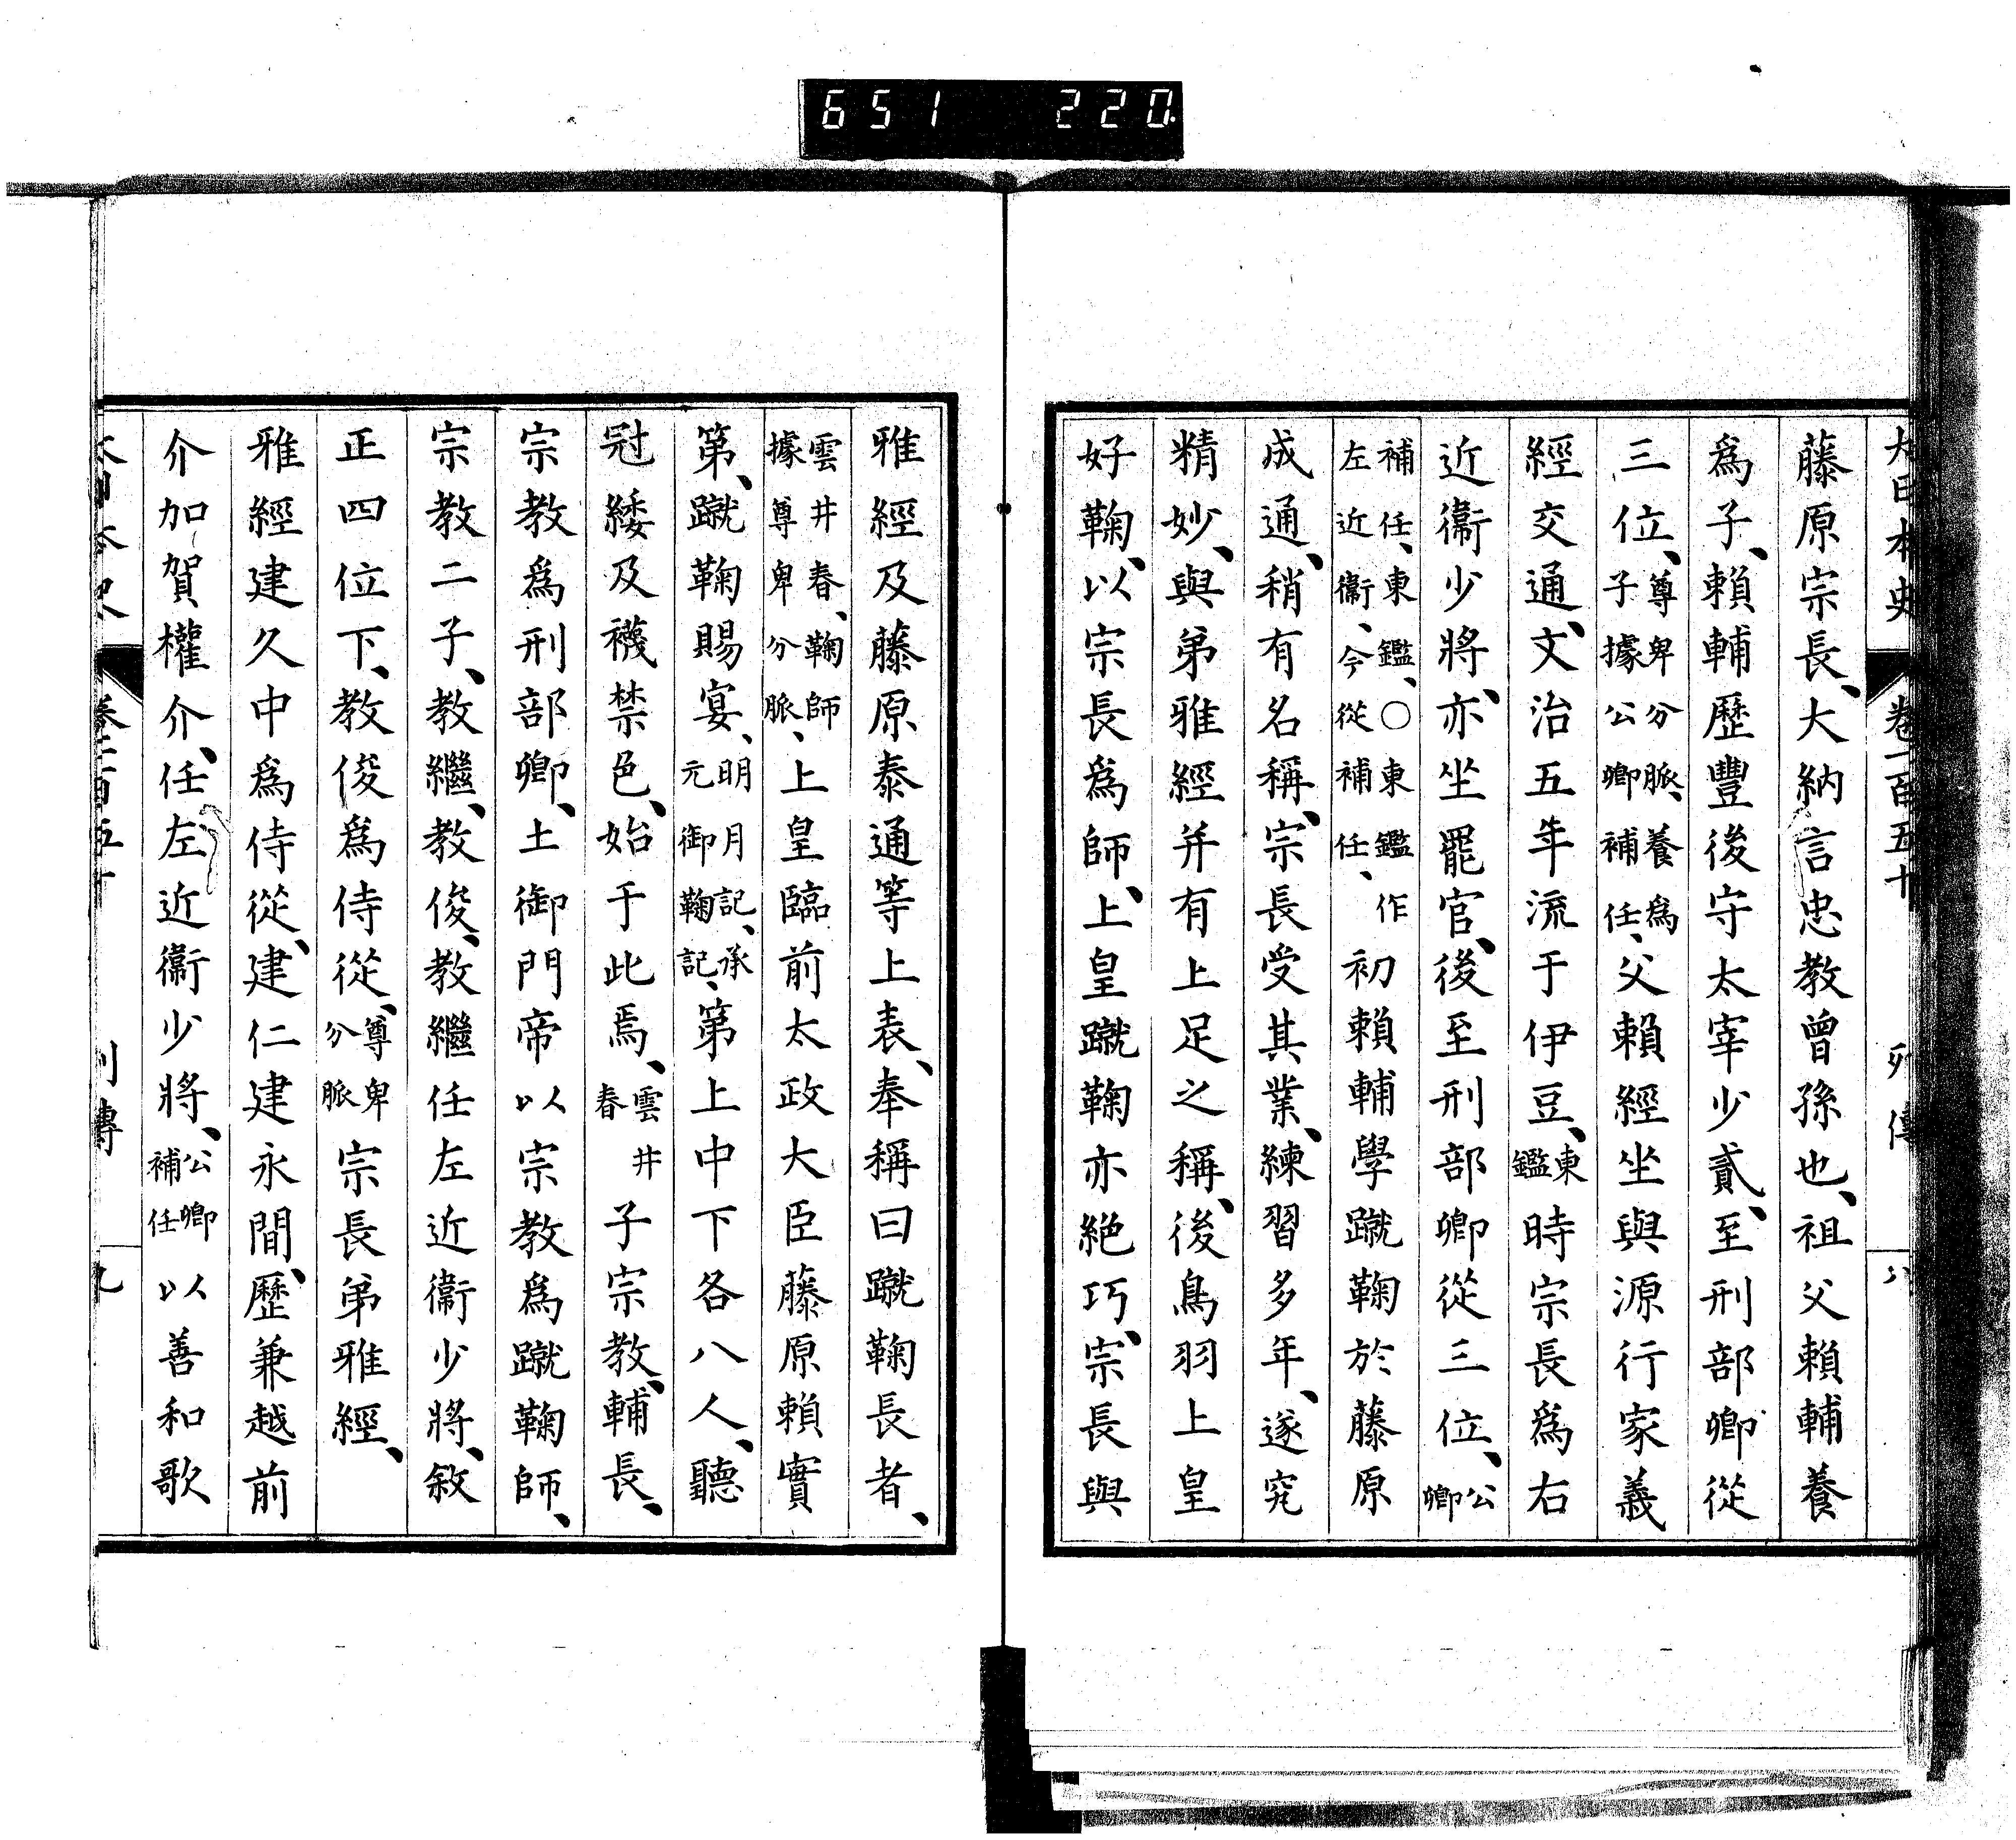 651 220
大日本史 卷一百五十 列傳 八
藤原宗長、大納言忠教曾孫也、祖父賴輔養
爲子、賴輔歷豐後守太宰少貳、至刑部卿從
三位、尊卑分脈、養爲子據公卿補任、父賴經坐與源行家義
經交通、文治五年流于伊豆、東鑑時宗長爲右
近衞少將、亦坐罷官、後至刑部卿從三位、公卿
補任、東鑑、○東鑑作左近衞、今從補任、初賴輔學蹴鞠於藤原
成通、稍有名稱、宗長受其業、練習多年、遂究
精妙、與弟雅經并有上足之稱、後鳥羽上皇
好鞠、以宗長爲師、上皇蹴鞠亦絕巧、宗長與
雅經及藤原泰通等上表、奉稱曰蹴鞠長者、
雲井春、鞠師據尊卑分脈、上皇臨前太政大臣藤原賴實
第、蹴鞠賜宴、明月記、承元御鞠記、第上中下各八人、聽
冠緌及襪禁色、始于此焉、雲井春子宗教、輔長、
宗教爲刑部卿、土御門帝以宗教爲蹴鞠師、
宗教二子、教繼、教俊、教繼任左近衞少將、敘
正四位下、教俊爲侍從、尊卑分脈宗長弟雅經、
雅經建久中爲侍從、建仁建永間、歷兼越前
介加賀權介、任左近衞少將、公卿補任以善和歌
大日本史 卷一百五十 列傳 九